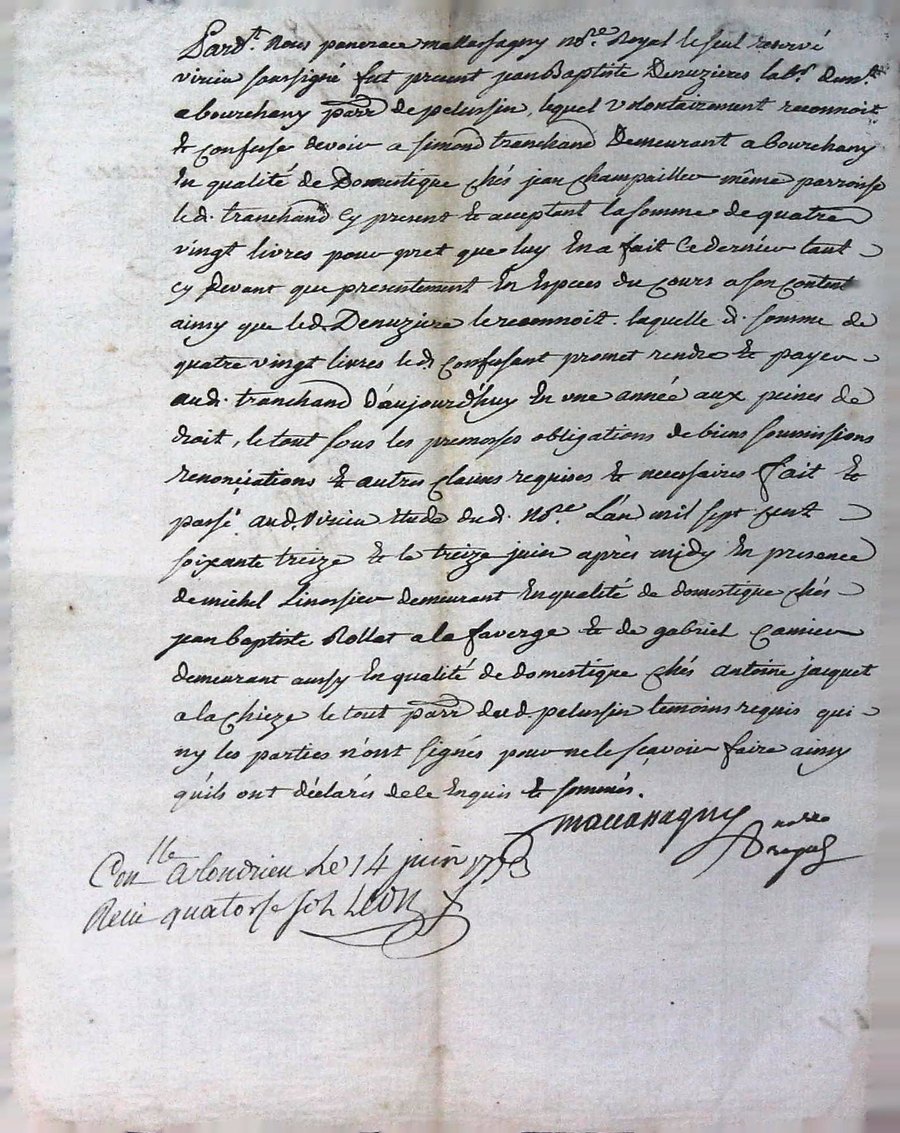 Pard.t Nous panerace mallassagny no.re Royal le seul reservé
virieu soussigné fut present jean Baptiste Denuzieres lab.r dem.t
a bourchany parr de pelussin, lequel volontairement reconnoit
& confesse devoir a simond tranchand Demeurant a bourchany
En qualité de Domestique chés jean champailler même parroisse
le d. tranchand Cy present & acceptant la somme de quatre
vingt livres pour pret que luy En a fait Ce dernier tant
cy Devant que presentement En Especes du cours a son content
ainsy que led. Denuziere le reconnoit. laquelle d. somme de
quatre vingt livres le d. confessant promet rendre & payer
aud. tranchand D'aujourd'huy En une année aux peines de
droit, le tout sous les promesses obligations de biens soumissions
renonciations & autres clauses requises & necessaires fait &
passé aud. Virieu Etude dud. No.re L'an mil sept cent
soixante treize & le treize juin après midy En presence
de michel Linossier demeurant En qualité de domestique chés
jean baptiste Rollet a la faverge & de gabriel Camier
demeurant aussy En qualité de domestique chés antoine jacquet
a la Chieze le tout parr dud. pelussin temoins requis qui
ny les parties n'ont signés pour ne le sçavoir faire ainsy
qu'ils ont déclarés de ce Enquis & sommés.
mallassagny no.re
royal
Con.lle A Condrieu Le 14 juin 1773
Reçu quatorse sols Leon